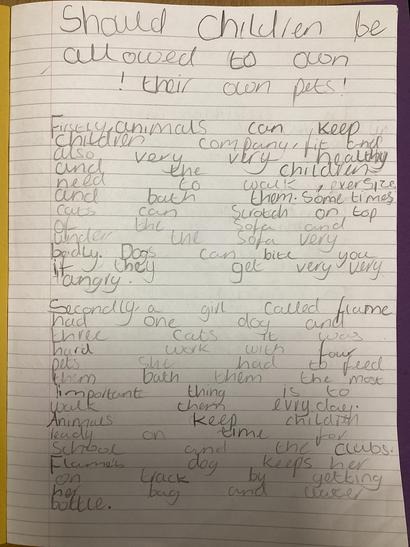 Should children be
allowed to own
! their own pets!
Firstly, animals can keep
children company, fit and
also very very healthy
and the children
need to walk, exersize
and bath them. Some times
cats can scratch on top
of the sofa and
under the sofa very
badly. Dogs can bite you
if they get very very
Hangry.
Secondly, a girl called flame
had one dog and
three cats it was
hard work with four
pets she had to feed
them bath them the most
important thing is to
walk them evry day.
Animals keep
ready on time for
School and the clubs.
Flame's dog keeps her
on track by getting
her bag and water
bottle.